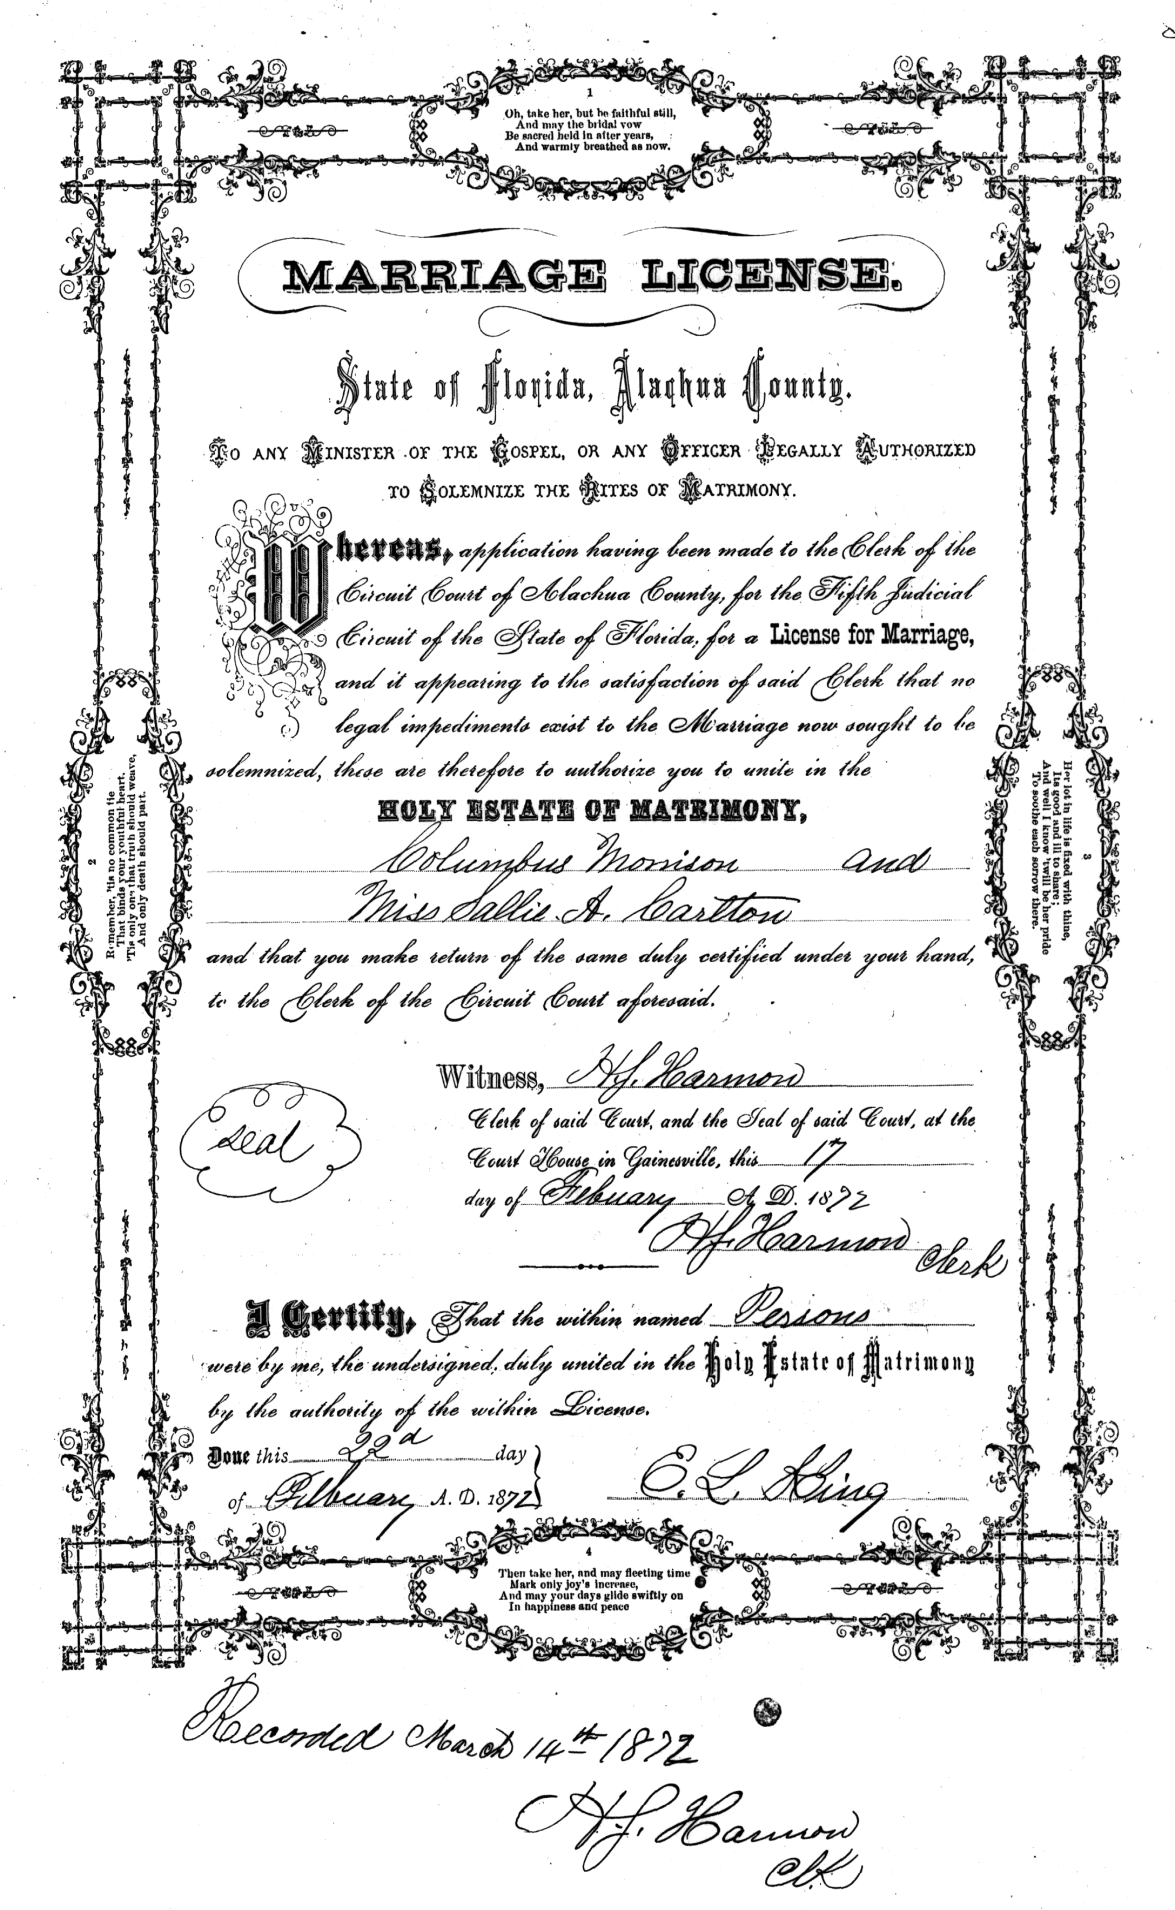 1
Oh, take her, but be faithful still,
And may the bridal vow
Be sacred held in after years,
And warmly breathed as now.
MARRIAGE LICENSE.
State of Florida, Alachua County.
TO ANY MINISTER OF THE GOSPEL, OR ANY OFFICER LEGALLY AUTHORIZED
TO SOLEMNIZE THE RITES OF MATRIMONY.
Whereas, application having been made to the Clerk of the
Circuit Court of Alachua County, for the Fifth Judicial
Circuit of the State of Florida, for a License for Marriage,
and it appearing to the satisfaction of said Clerk that no
legal impediments exist to the Marriage now sought to be
solemnized, these are therefore to authorize you to unite in the
HOLY ESTATE OF MATRIMONY,
Columbus Morrison and
Miss Sallie A. Carlton
and that you make return of the same duly certified under your hand,
to the Clerk of the Circuit Court aforesaid.
2
Remember, 'tis no common tie
That binds your youthful heart,
'Tis only one that truth should weave,
And only death should part.
3
Her lot in life is fixed with thine,
Its good and ill to share;
And well I know 'twill be her pride
To soothe each sorrow there.
Witness, H.J. Harmon
Clerk of said Court, and the Seal of said Court, at the
Court House in Gainesville, this 17
day of Febuary A. D. 1872
H.J. Harmon
Clerk
Seal
I Certify, That the within named Persons
were by me, the undersigned, duly united in the Holy Estate of Matrimony
by the authority of the within License.
Done this 22d day
of Febuary A. D. 1872
E. L. King
4
Then take her, and may fleeting time
Mark only joy's increase,
And may your days glide swiftly on
In happiness and peace
Recorded March 14th 1872
H.J. Harmon
Clk